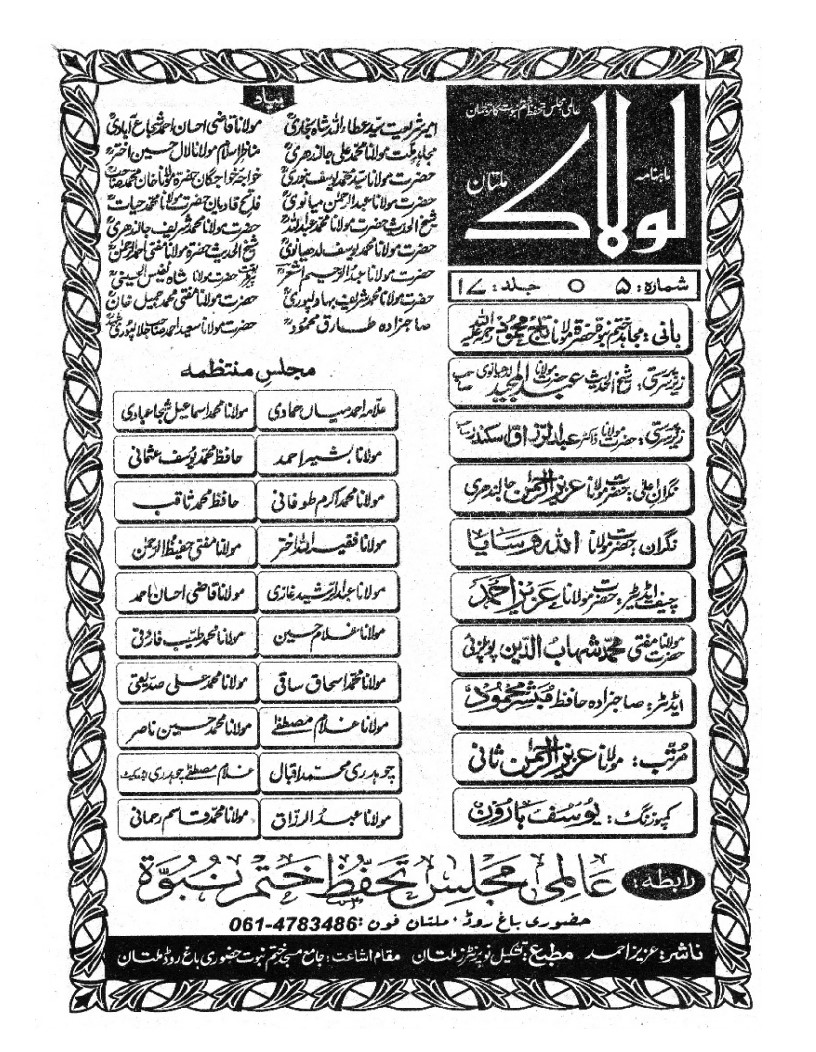 عالمی مجلس تحفظ ختم نبوت کا ترجمان
ماہنامہ
لولاک
ملتان
شمارہ: ۵ ○ جلد: ۱۷
بانی: مجاہد ختم نبوت حضرت مولانا تاج محمود رحمۃ اللہ علیہ
زیر سرپرستی: شیخ الحدیث حضرت مولانا عبدالمجید لدھیانوی صاحب
زیر سرپرستی: حضرت مولانا ڈاکٹر عبدالرزاق اسکندر صاحب
نگران اعلیٰ: حضرت مولانا عزیز الرحمٰن جالندھری
نگران: حضرت مولانا اللہ وسایا
چیف ایڈیٹر: حضرت مولانا عزیز احمد
حضرت مولانا مفتی محمد شہاب الدین پوپلزئی
ایڈیٹر: صاحبزادہ حافظ مبشر محمود
مرتب: مولانا عزیز الرحمٰن ثانی
کمپوزنگ: یوسف ہارون
بیاد
امیر شریعت سید عطاء اللہ شاہ بخاریؒ مولانا قاضی احسان احمد شجاع آبادیؒ
مجاہد ملت مولانا محمد علی جالندھریؒ مناظر اسلام مولانا لال حسین اخترؒ
حضرت مولانا سید محمد یوسف بنوریؒ خواجہ خواجگان حضرت مولانا خان محمد صاحبؒ
حضرت مولانا عبدالرحمٰن میانویؒ فاتح قادیان حضرت مولانا محمد حیاتؒ
شیخ الحدیث حضرت مولانا محمد عبداللہؒ حضرت مولانا محمد شریف جالندھریؒ
حضرت مولانا محمد یوسف لدھیانویؒ شیخ الحدیث حضرت مولانا مفتی احمد الرحمٰنؒ
حضرت مولانا عبدالرحیم اشعرؒ پیر طریقت حضرت مولانا شاہ نفیس الحسینیؒ
حضرت مولانا محمد شریف بہاولپوریؒ حضرت مولانا مفتی محمد جمیل خانؒ
صاحبزادہ طارق محمودؒ حضرت مولانا سعید احمد صاحب جلالپوریؒ
مجلس منتظمہ
علامہ احمد میاں حمادی مولانا محمد اسماعیل شجاعبادی
مولانا بشیر احمد حافظ محمد یوسف عثمانی
مولانا محمد اکرم طوفانی حافظ محمد ثاقب
مولانا فقیر اللہ اختر مولانا مفتی حفیظ الرحمٰن
مولانا عبدالرشید غازی مولانا قاضی احسان احمد
مولانا غلام حسین مولانا محمد طیب فاروقی
مولانا محمد اسحاق ساقی مولانا محمد علی صدیقی
مولانا غلام مصطفےٰ مولانا محمد حسین ناصر
چوہدری محمد اقبال غلام مصطفےٰ چوہدری ایڈووکیٹ
مولانا عبدالرزاق مولانا محمد قاسم رحمانی
رابطہ: عالمی مجلس تحفظ ختم نبوۃ
حضوری باغ روڈ، ملتان فون: 061-4783486
ناشر: عزیز احمد مطبع: تشکیل نو پرنٹرز ملتان مقام اشاعت: جامع مسجد ختم نبوت حضوری باغ روڈ ملتان